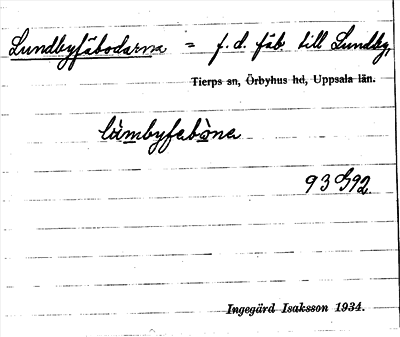 Lundbyfäbodarna = f.d. fäb. till Lundby,
Tierps sn, Örbyhus hd, Uppsala län.
lùmbyfebòna
93 G 92.
Ingegärd Isaksson 1934.